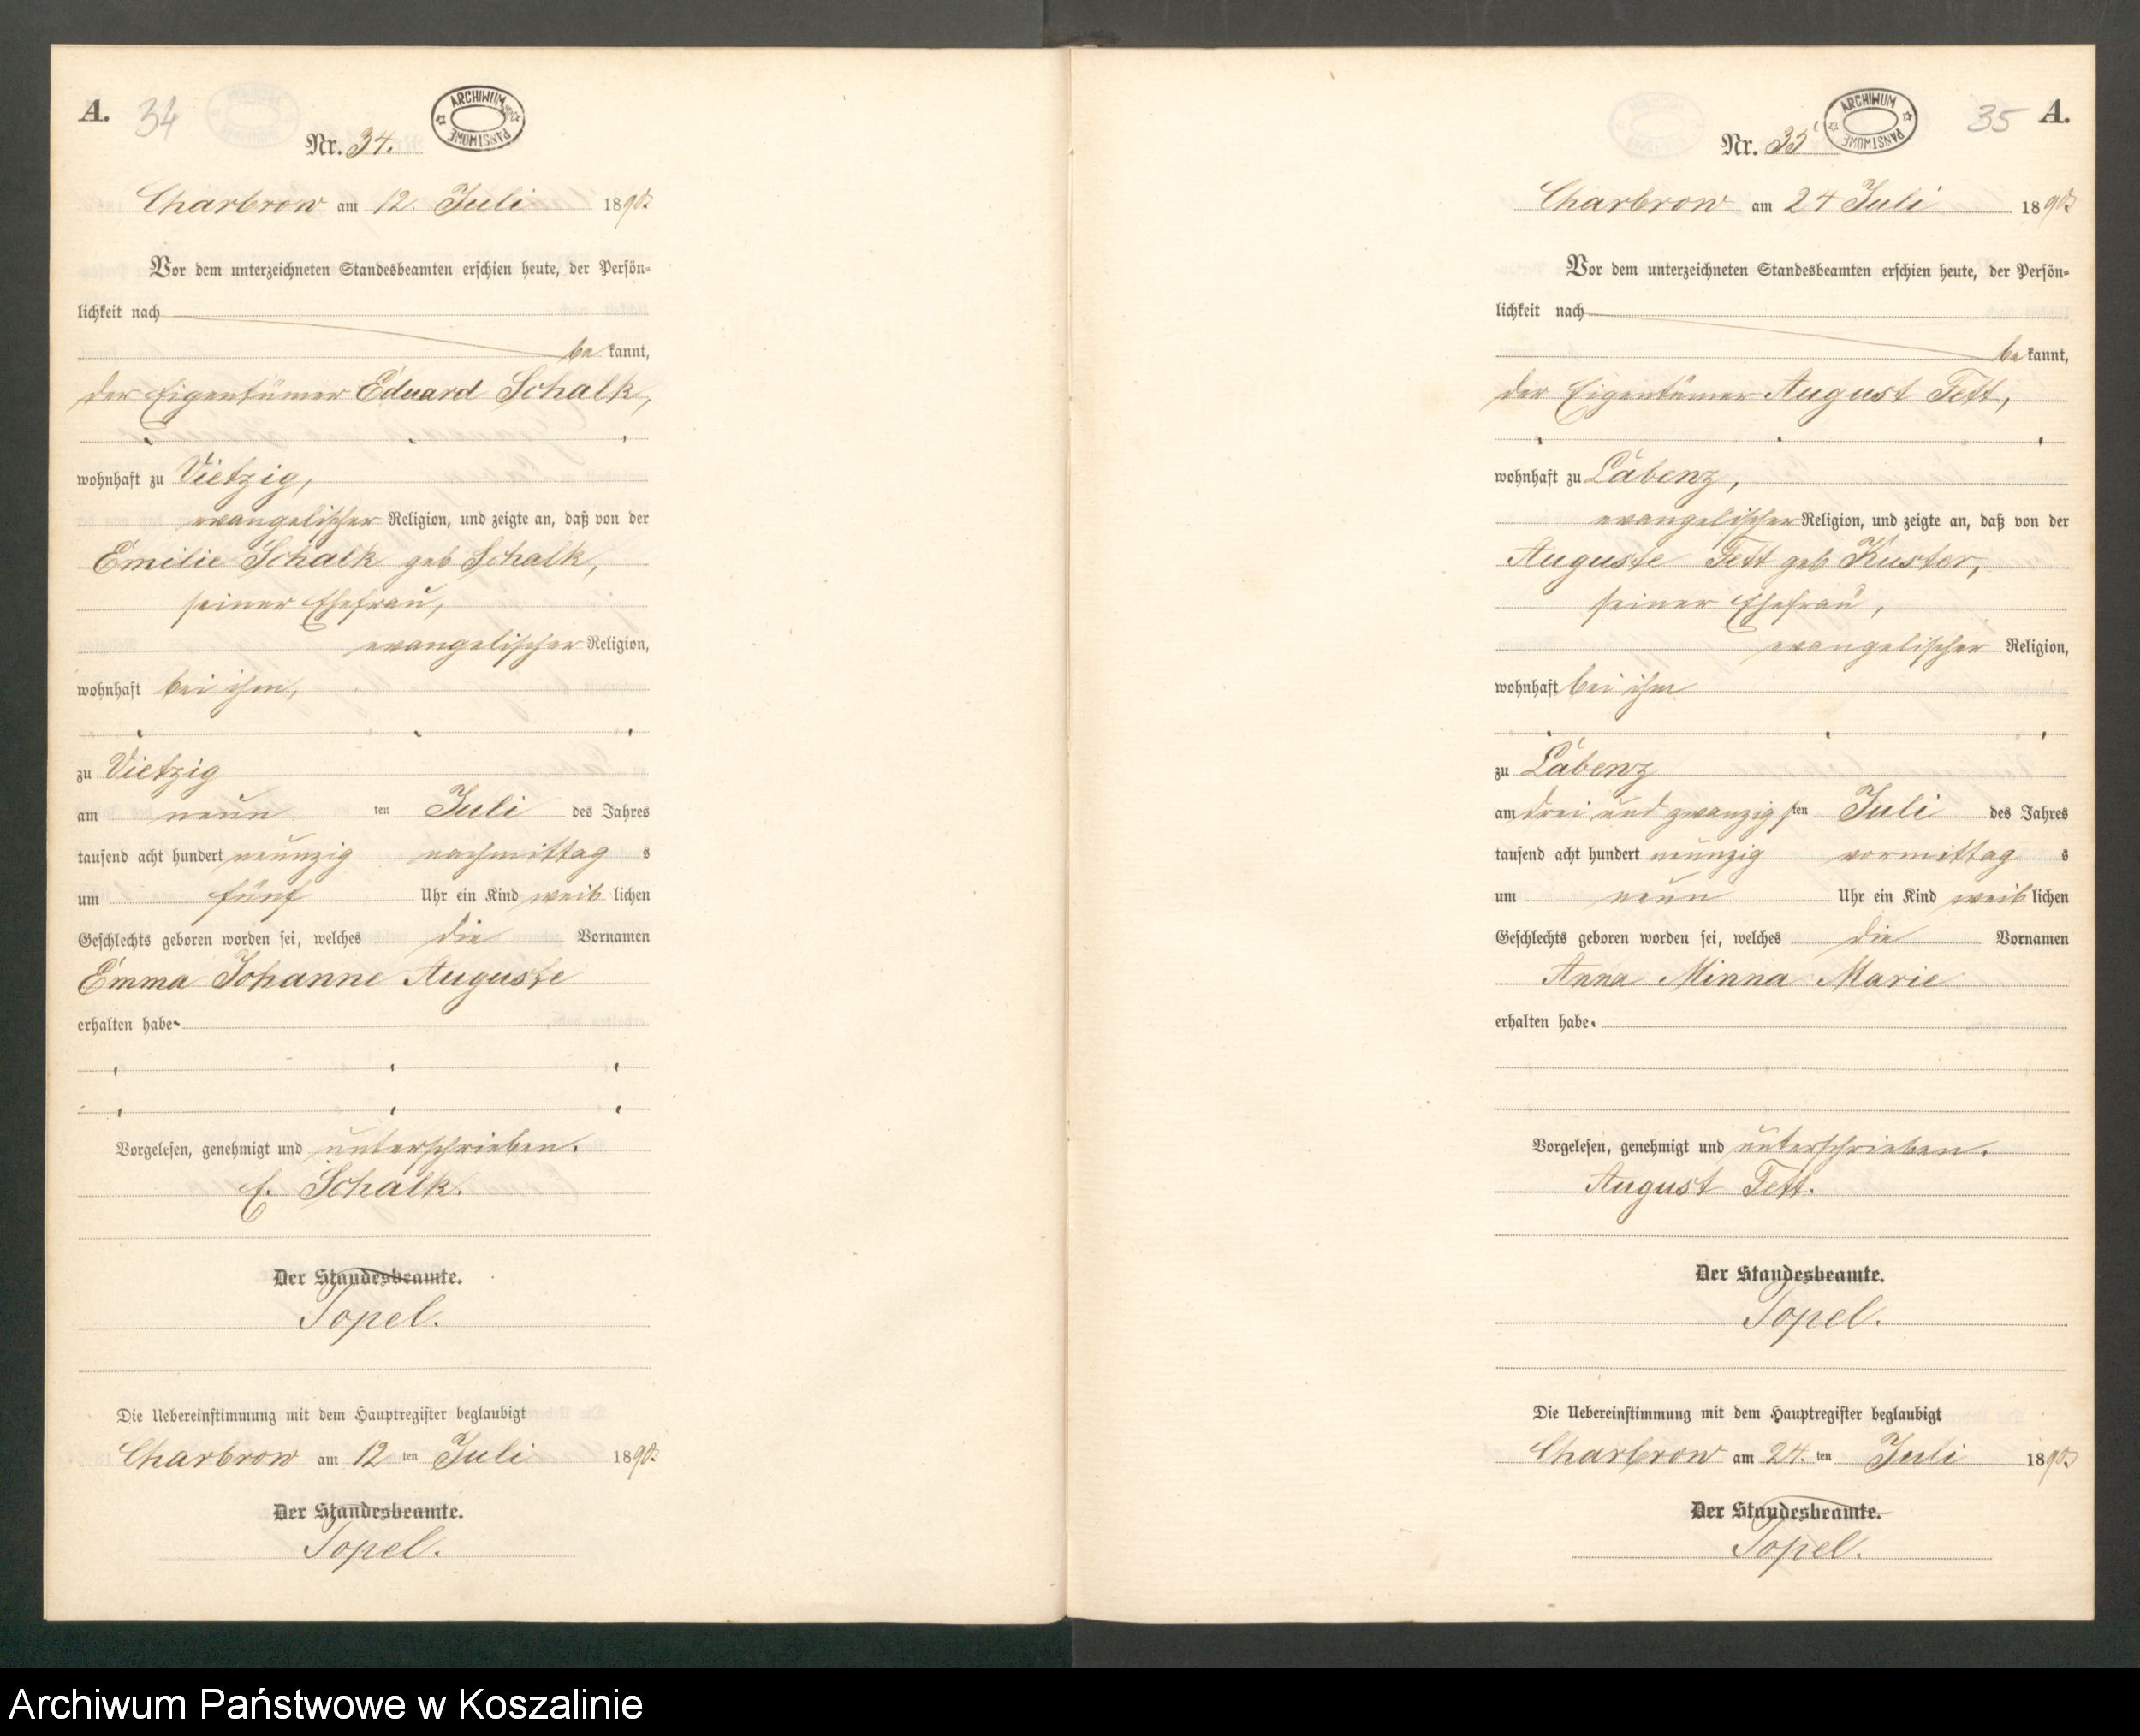 A. 34
ARCHIWUM PAŃSTWOWE
Nr. 34.
Charbrow am 12. Juli 1890.
Vor dem unterzeichneten Standesbeamten erschien heute, der Persön-
lichkeit nach
be kannt,
der Eigentümer Eduard Schalk,
wohnhaft zu Vietzig,
evangelischer Religion, und zeigte an, daß von der
Emilie Schalk geb Schalk,
seiner Ehefrau,
evangelischer Religion,
wohnhaft bei ihm,
zu Vietzig
am neun ten Juli des Jahres
tausend acht hundert neunzig nachmittag s
um fünf Uhr ein Kind weib lichen
Geschlechts geboren worden sei, welches die Vornamen
Emma Johanne Auguste
erhalten habe.
Vorgelesen, genehmigt und unterschrieben.
E. Schalk.
Der Standesbeamte.
Topel.
Die Uebereinstimmung mit dem Hauptregister beglaubigt
Charbrow am 12 ten Juli 1890.
Der Standesbeamte.
Topel.
35 A.
ARCHIWUM PAŃSTWOWE
Nr. 35
Charbrow am 24 Juli 1890
Vor dem unterzeichneten Standesbeamten erschien heute, der Persön-
lichkeit nach
be kannt,
der Eigentümer August Fett,
wohnhaft zu Labenz,
evangelischer Religion, und zeigte an, daß von der
Auguste Fett geb Kuster,
seiner Ehefrau,
evangelischer Religion,
wohnhaft bei ihm
zu Labenz
am drei und zwanzigsten Juli des Jahres
tausend acht hundert neunzig vormittag s
um neun Uhr ein Kind weib lichen
Geschlechts geboren worden sei, welches die Vornamen
Anna Minna Marie
erhalten habe.
Vorgelesen, genehmigt und unterschrieben.
August Fett.
Der Standesbeamte.
Topel.
Die Uebereinstimmung mit dem Hauptregister beglaubigt
Charbrow am 24. ten Juli 1890
Der Standesbeamte.
Topel.
Archiwum Państwowe w Koszalinie